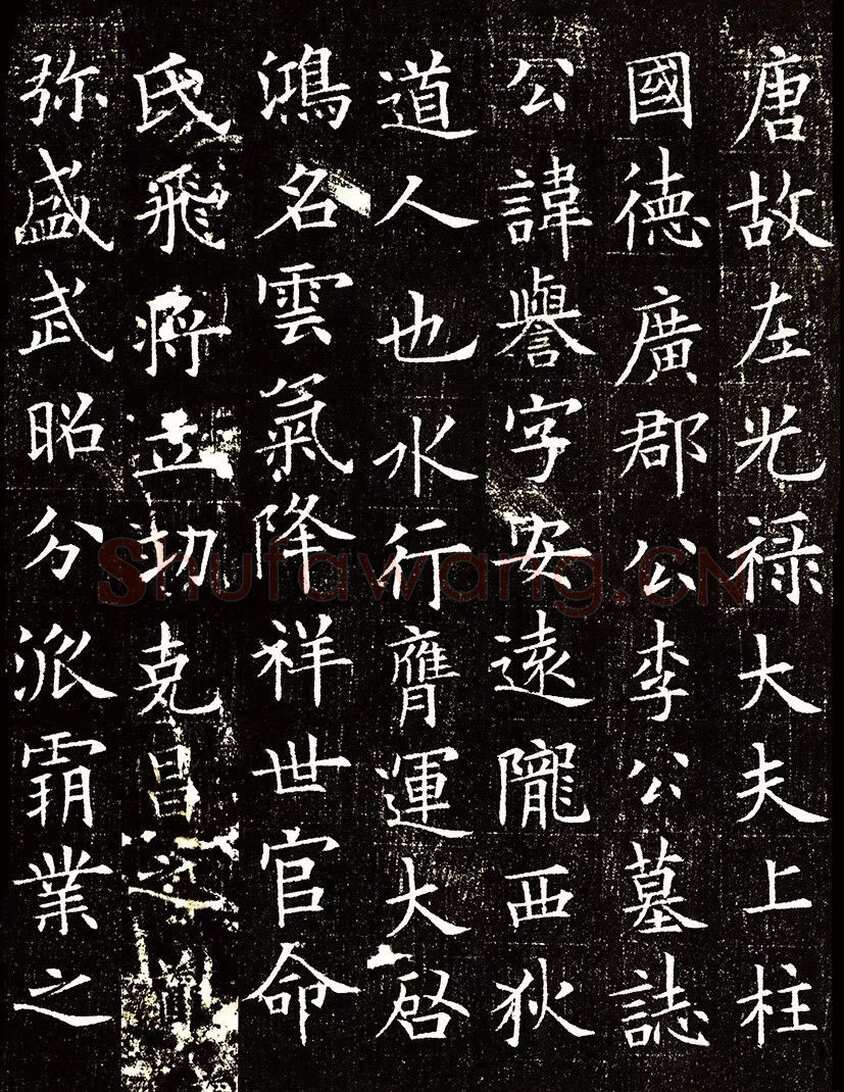 唐故左光禄大夫上柱
國德廣郡公李公墓誌
公諱譽字安遠隴西狄
道人也水行膺運大啓
鴻名雲氣降祥世官命
氏飛將立功克昌之
弥盛武昭分派霸業之
Shufawang.CN